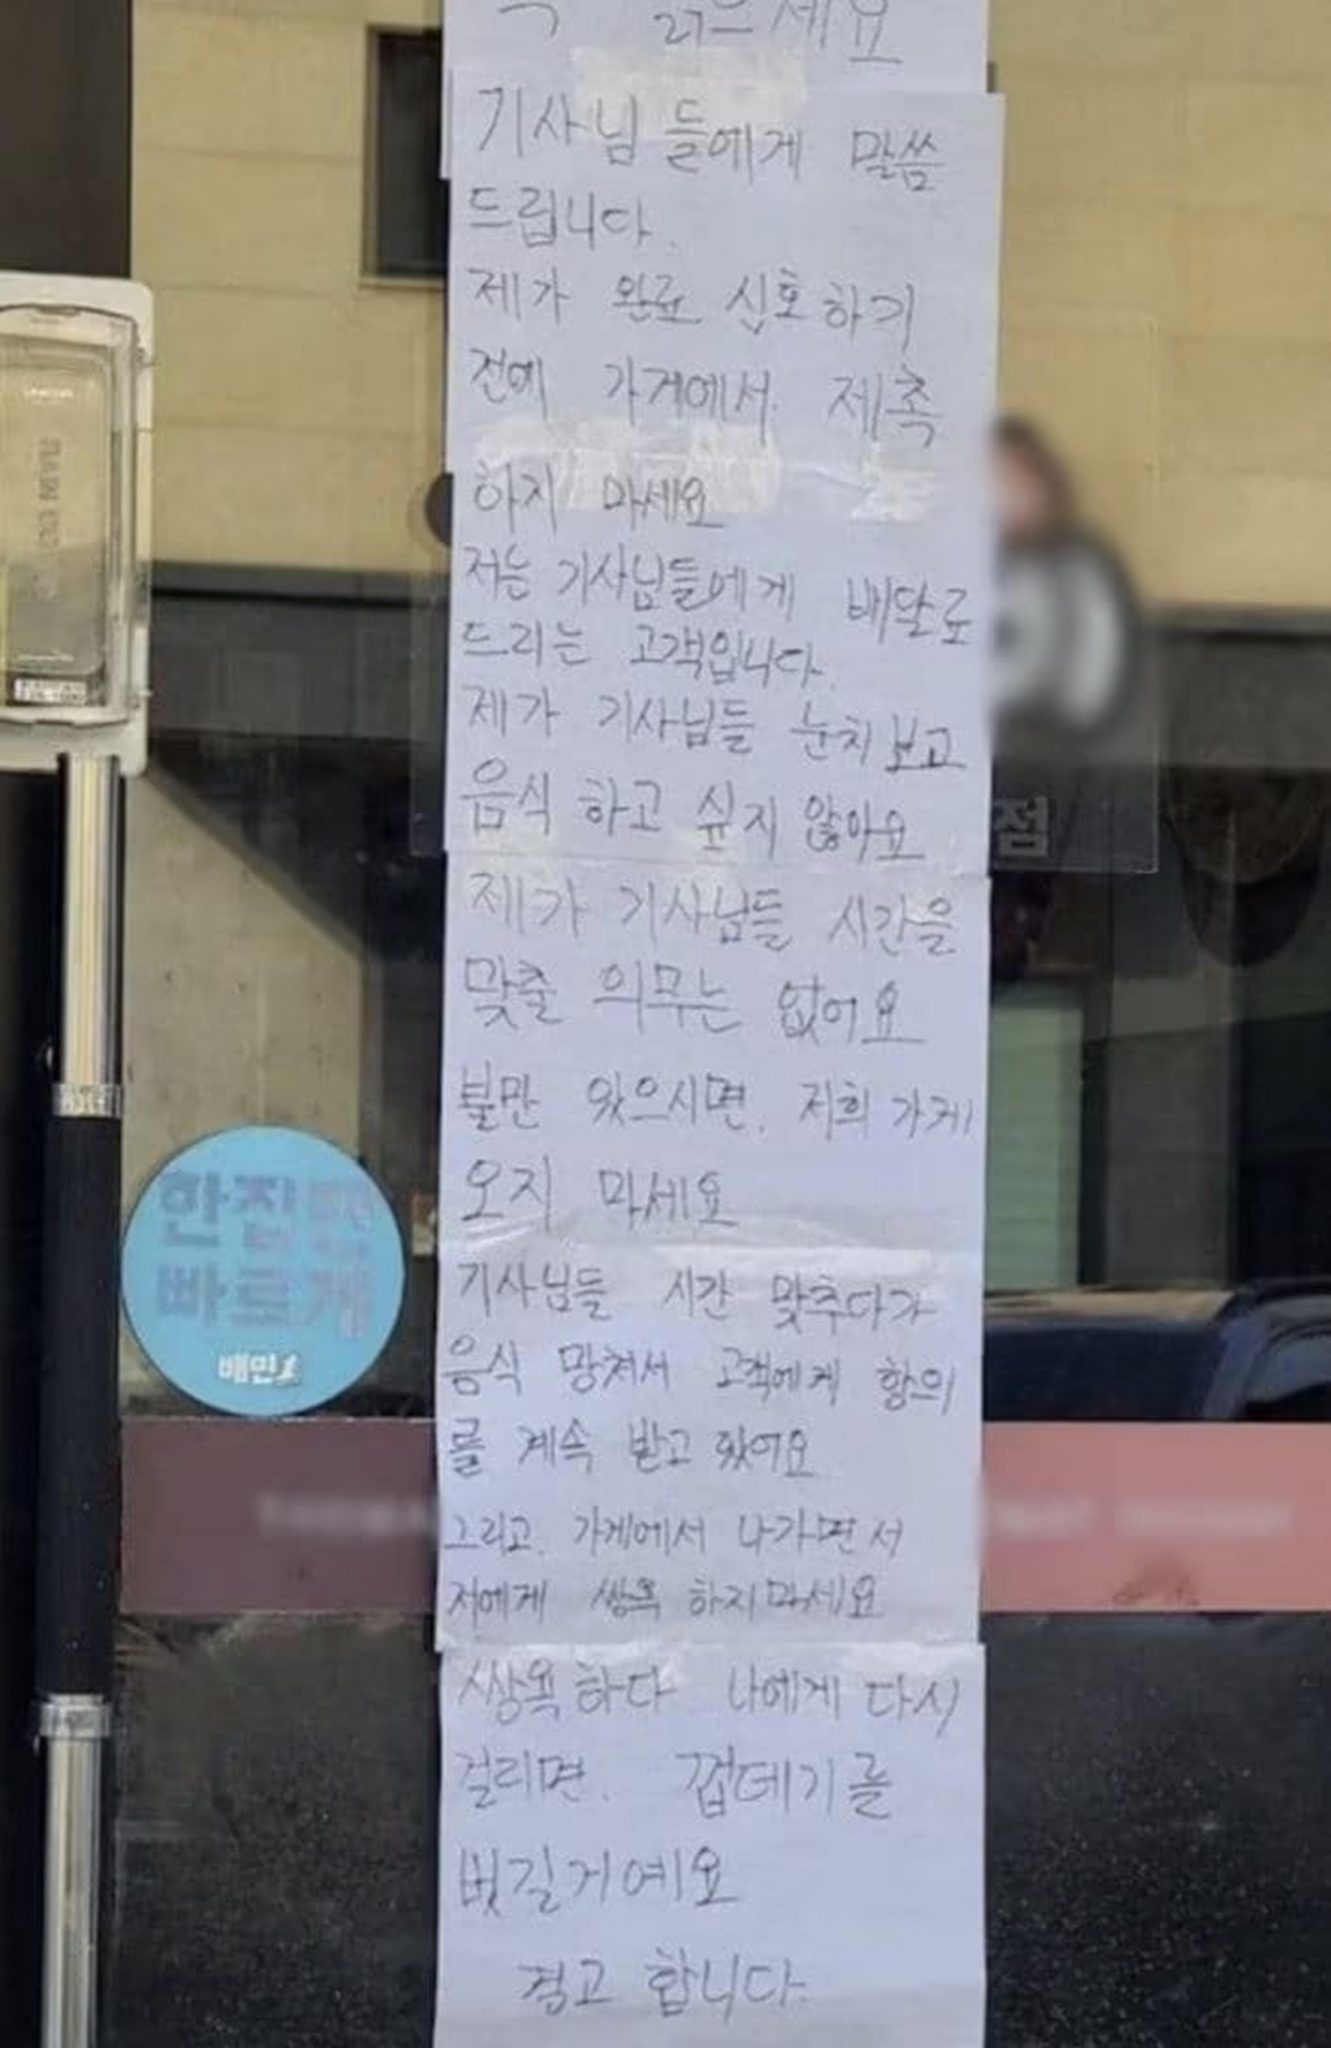 읽으세요
기사님들에게 말씀
드립니다.
제가 완료 신호하기
전에 가게에서 제촉
하지 마세요
저는 기사님들에게 배달료
드리는 고객입니다.
제가 기사님들 눈치보고
음식 하고 싶지 않아요
제가 기사님들 시간을
맞출 의무는 없어요
불만 있으시면. 저희 가게
오지 마세요
기사님들 시간 맞추다가
음식 망쳐서 고객에게 항의
를 계속 받고 있어요
그리고. 가게에서 나가면서
저에게 쌍욕 하지마세요
쌍욕하다 나에게 다시
걸리면. 껍데기를
벗길거예요
경고 합니다.
점
한집만
빠르게
배민1